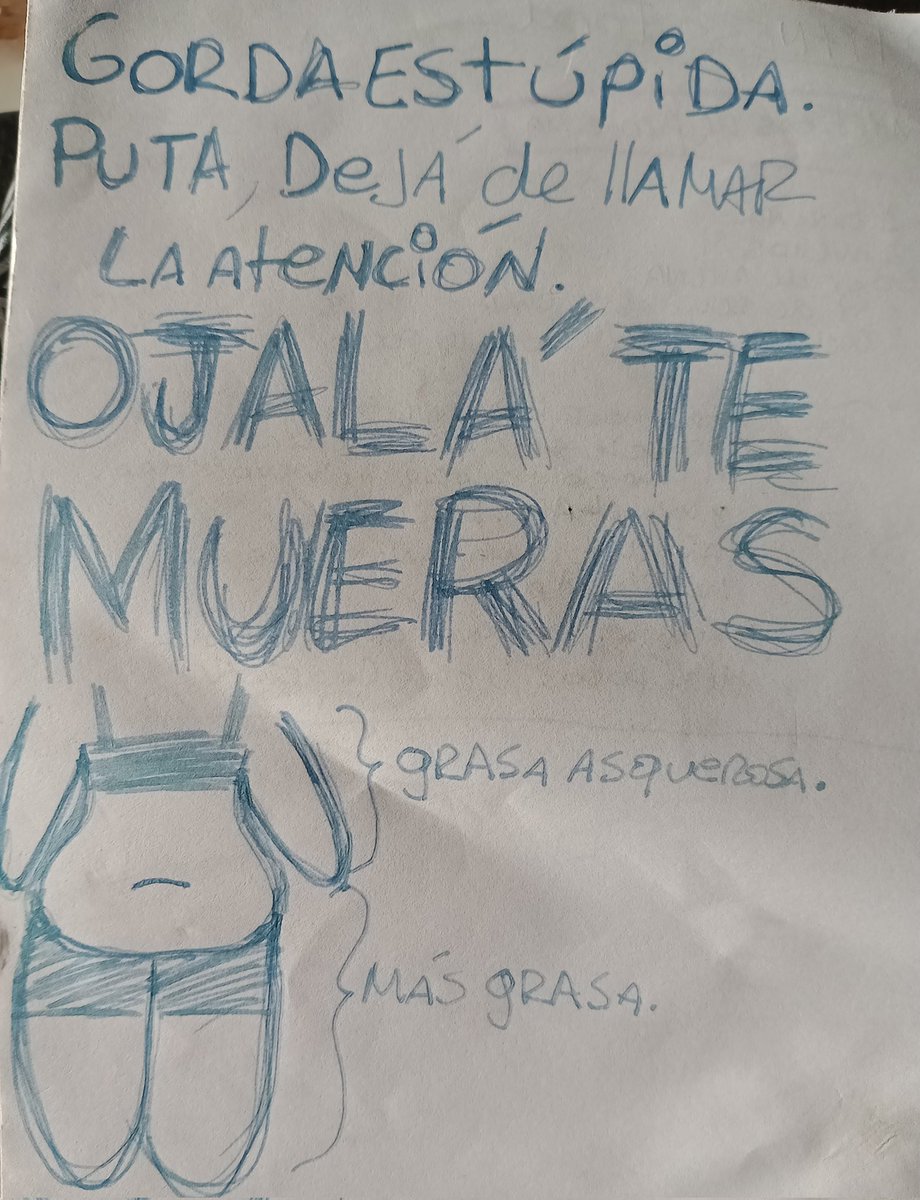 GORDA ESTÚPIDA.
PUTA, DEJÁ de llAMAR
LA AtENCIÓN.
OJALÁ TE
MUERAS
gRASA ASQUEROSA.
MÁS gRASA.